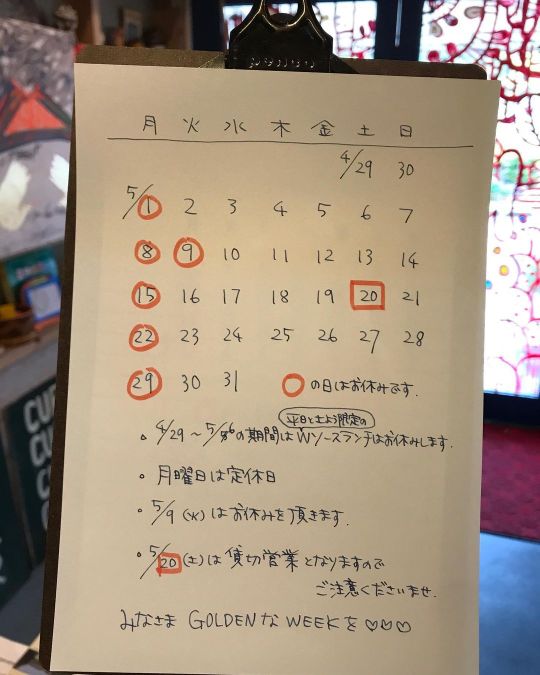 月 火 水 木 金 土 日
4/29 30
5/1 2 3 4 5 6 7
8 9 10 11 12 13 14
15 16 17 18 19 20 21
22 23 24 25 26 27 28
29 30 31 ○の日はお休みです.
平日と土よう限定の
• 4/29～5/6の期間はWソースランチはお休みします.
• 月曜日は定休日
• 5/9(火)はお休みを頂きます.
• 5/20(土)は貸切営業となりますので
ご注意くださいませ.
みなさま GOLDENな WEEKを♡♡♡